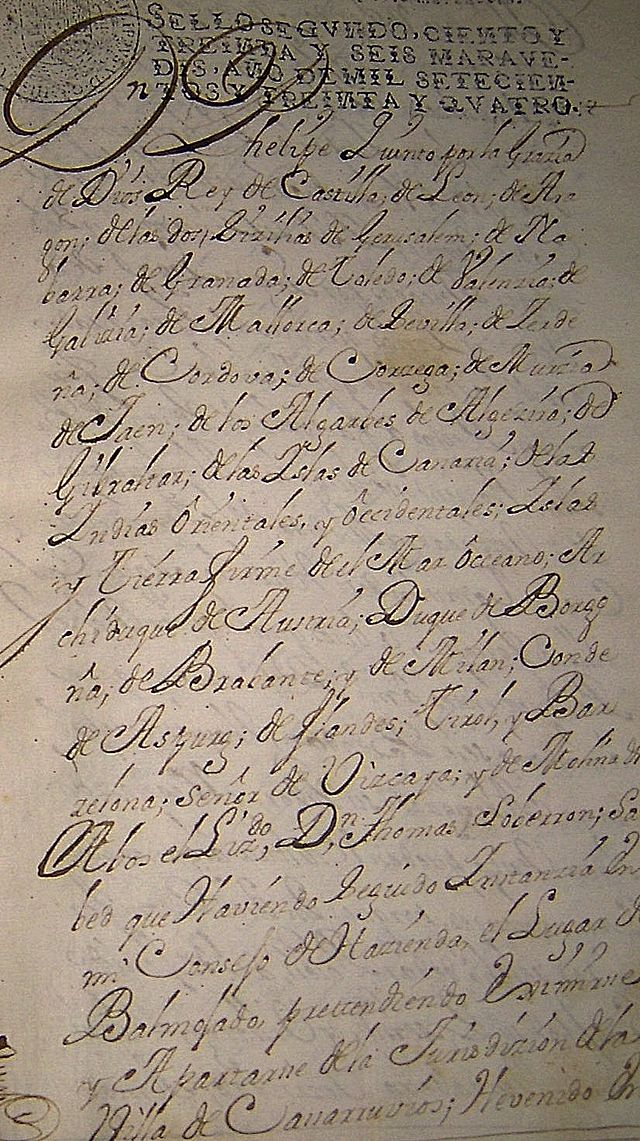 SELLO SEGVNDO, CIENTO Y
TREINTA Y SEIS MARAVE-
DIS, AÑO DE MIL SETECIEN-
TOS Y TREINTA Y QVATRO.
Phelipe Quinto por la Grazia
de Dios Rey de Castilla, de Leon; de Ara
gon; de las dos Sizilias de Gerusalem; de Na
barra; de Granada; de Toledo; de Valenzia; de
Galizia; de Mallorca; de Sevilla; de Zerde
ña; de Cordova; de Corzega; de Murzia
de Jaen; de los Algarbes de Algezira; de
Gibraltar; de las Islas de Canaria; de las
Indias Orientales, y Occidentales; Islas
y Tierra firme de el Mar Occeano; Ar
chiduque de Austria; Duque de Borgo
ña; de Brabante; y de Milan; Conde
de Aspurg; de flandes; Tirol, y Bar
zelona; señor de Vizcaya; y de Molina &
A bos el Lizdo, Dn. Thomas Soberron; Sa
bed que Haviendo Seguido Instanzia En
mi Consejo de Hazienda, el Lugar de
Balmojado, prettendiendo Eximirse
y Apartarse de la Jurisdizion de la
Villa de Casarruvios; Hevenido En